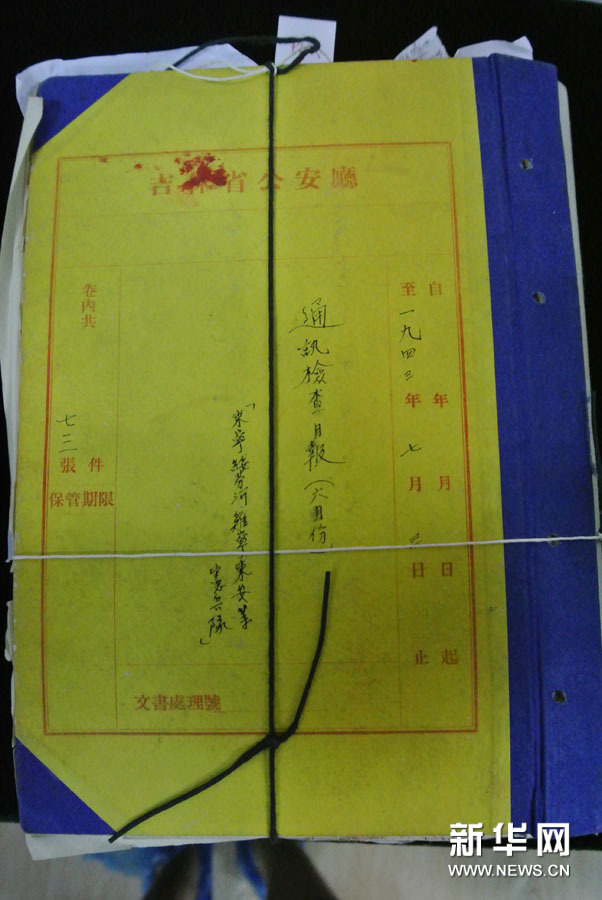 吉林省公安廳
自 年 月 日 起
至一九四三年七月 日 止
通訊檢查月報(六月份)
「東寧綏芬河雞寧東安等
憲兵隊」
卷內共
七二 張 件
保管期限
文書處理號
新华网
WWW.NEWS.CN